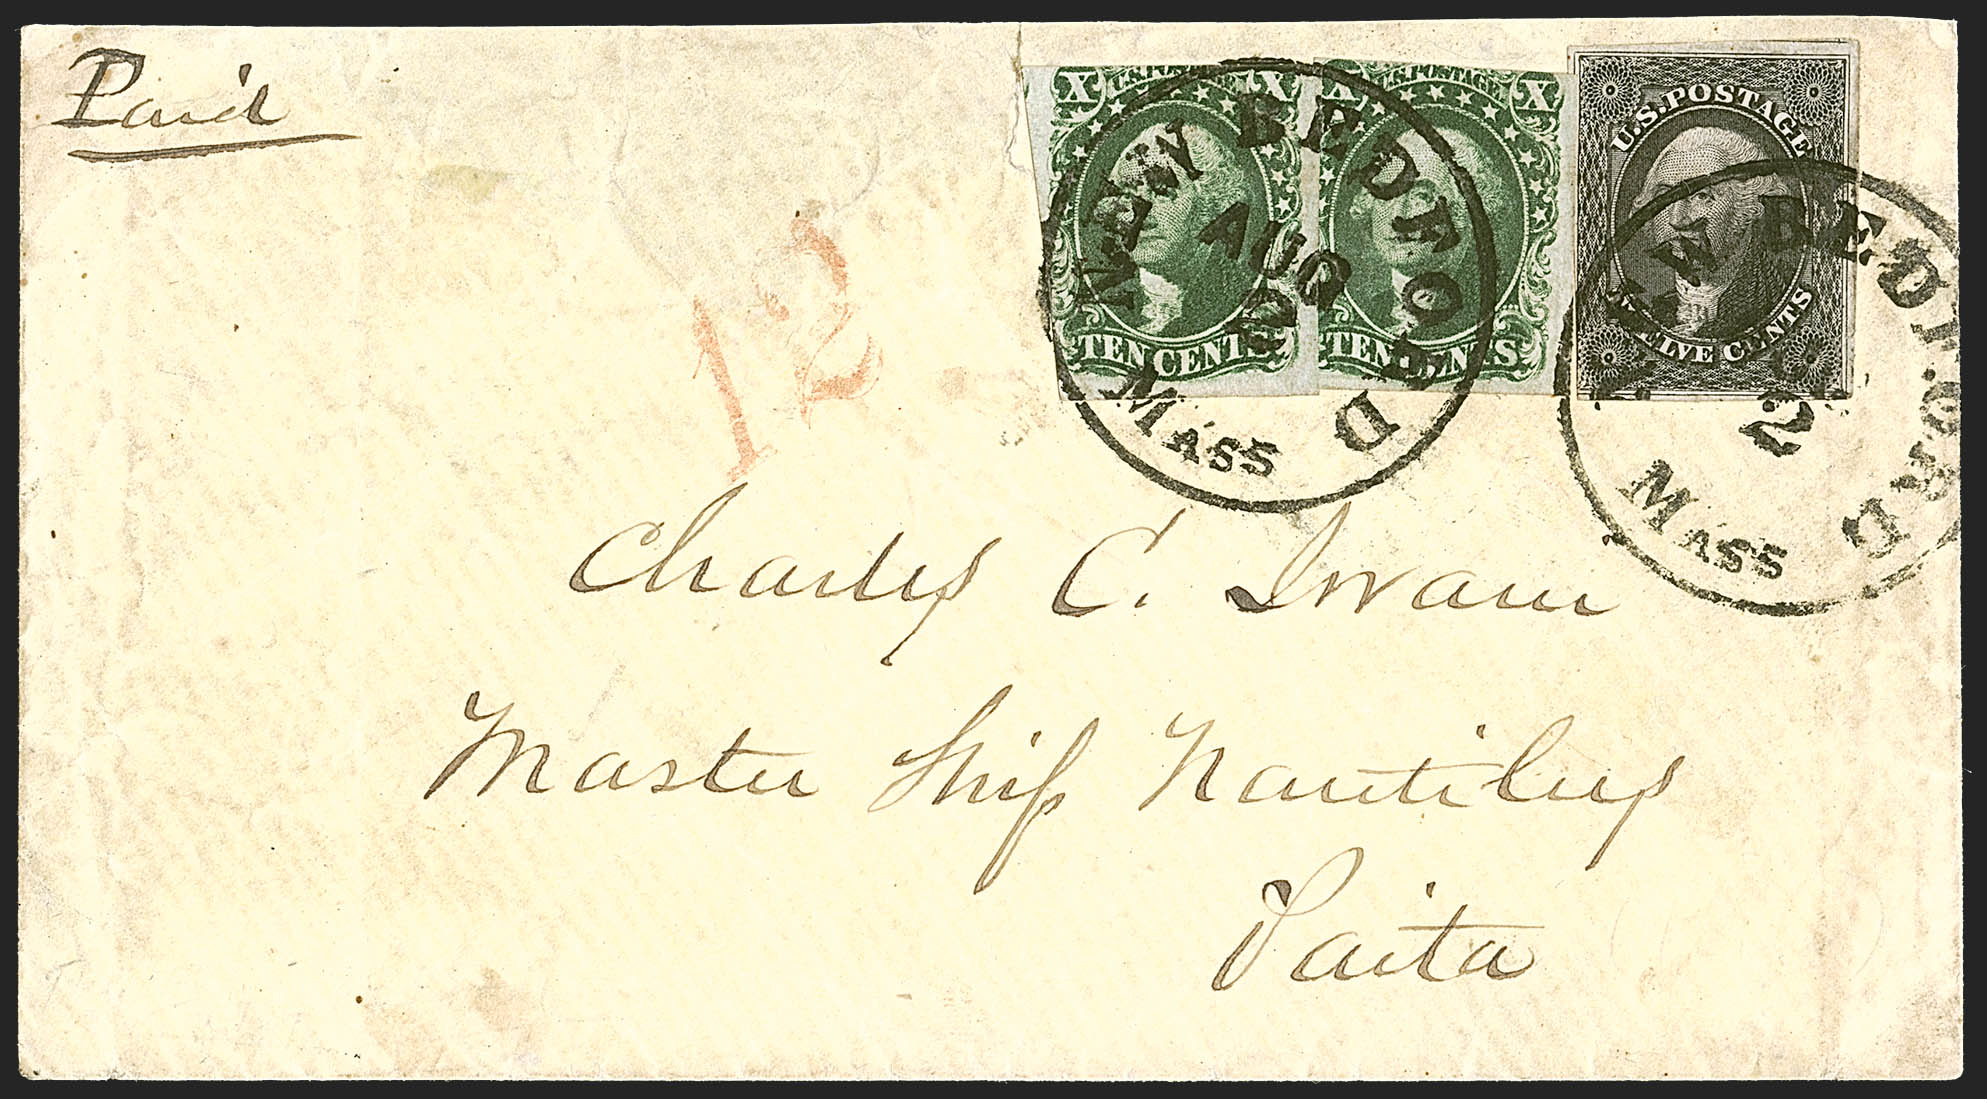 Paid
X U.S. POSTAGE X
TEN CENTS
X U.S. POSTAGE X
TEN CENTS
U.S. POSTAGE
TWELVE CENTS
NEW BEDFORD
AUG
2
MASS
NEW BEDFORD
2
MASS
12
Charles C. Swain
Master Ship Nautilus
Paita